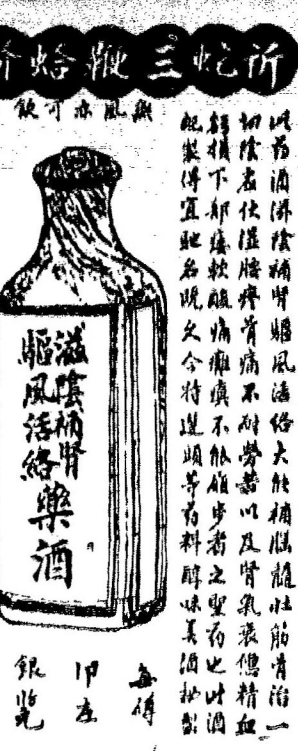 祈蛇三鞭蛤蚧
無風亦可飲
此药酒滋陰補腎驅風活络大能補腦髓壯筋骨治一
切陰虛伏濕腰疼背痛不耐勞以及腎氣衰憊精血
虧損下部痿軟酸痛癱瘓不能步者之聖药也此酒
配製得宜馳名既久今特選頭等药料醇味美酒秘製
滋陰補腎
驅風活絡
藥酒
每
銀毫